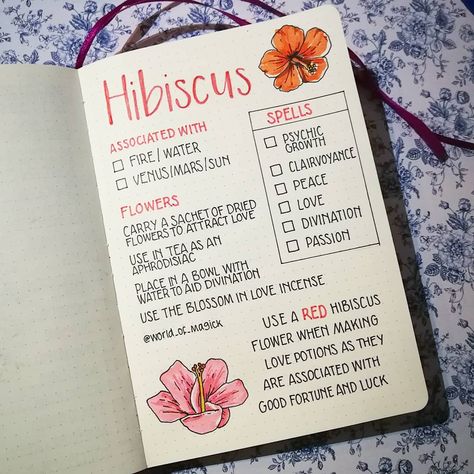 Hibiscus
ASSOCIATED WITH
FIRE/WATER
VENUS/MARS/SUN
SPELLS
PSYCHIC
GROWTH
CLAIRVOYANCE
PEACE
LOVE
DIVINATION
PASSION
FLOWERS
CARRY A SACHET OF DRIED
FLOWERS TO ATTRACT LOVE
USE IN TEA AS AN
APHRODISIAC
PLACE IN A BOWL WITH
WATER TO AID DIVINATION
USE THE BLOSSOM IN LOVE INCENSE
@world_of_magick
USE A RED HIBISCUS
FLOWER WHEN MAKING
LOVE POTIONS AS THEY
ARE ASSOCIATED WITH
GOOD FORTUNE AND LUCK